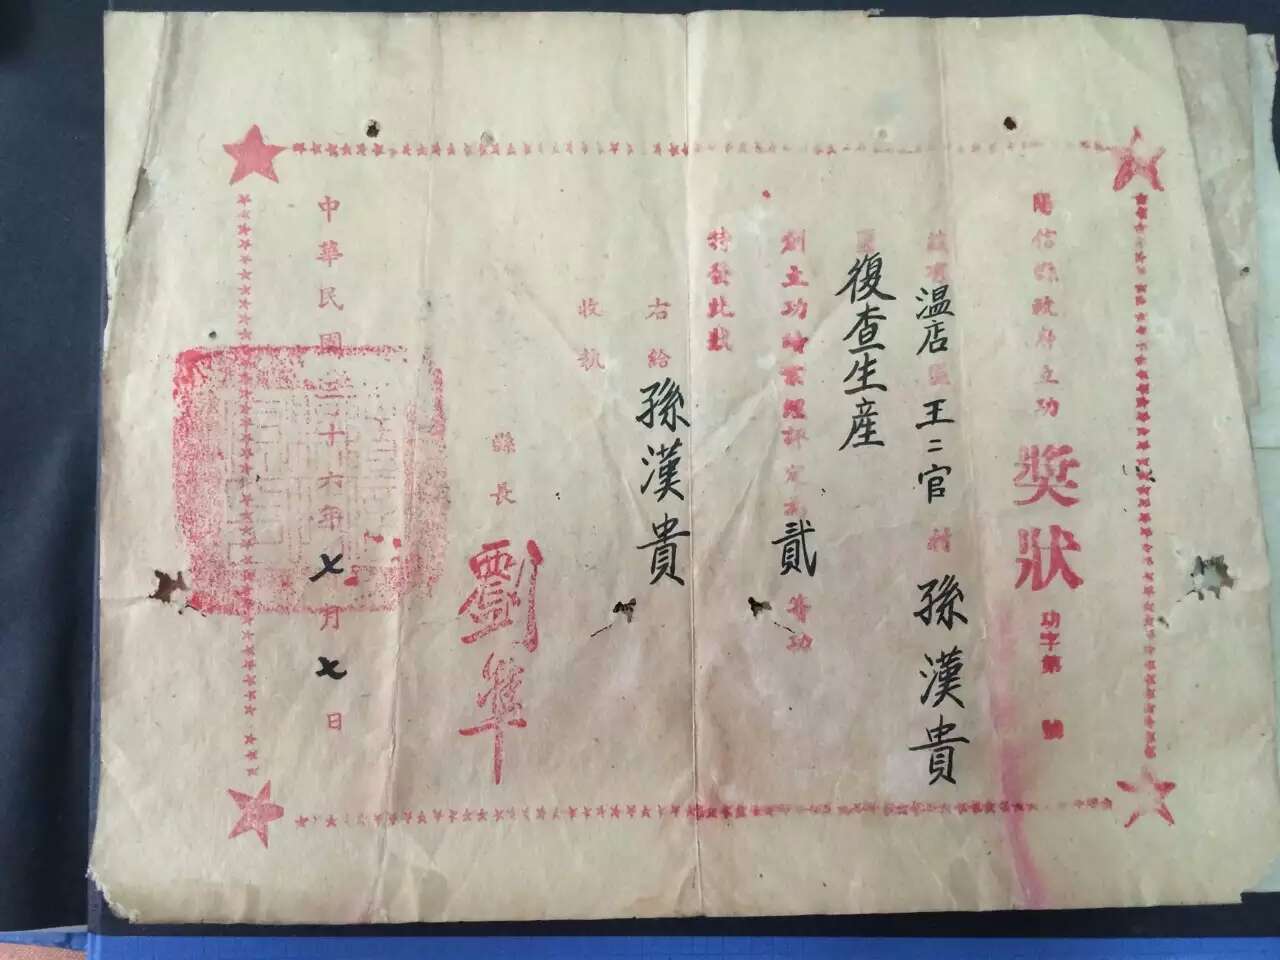 陽信縣政府立功獎狀 功字第 號
茲有温店區王二官村 孫漢貴
復查生產
創立功績業經評定為貳等功
特發此狀
右給 孫漢貴
收執
縣長
中華民國三十六年七月七日